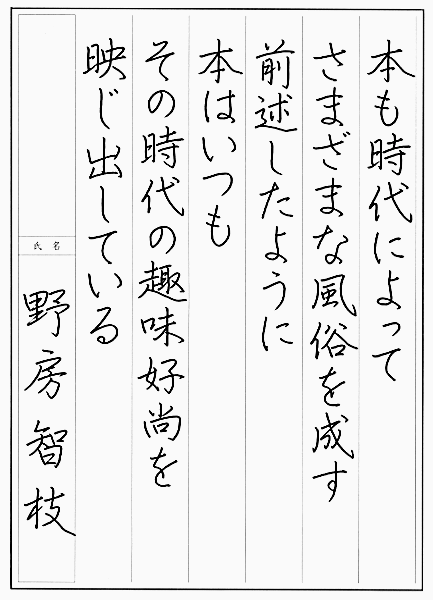 本も時代によって
さまざまな風俗を成す
前述したように
本はいつも
その時代の趣味好尚を
映じ出している
氏名
野房智枝